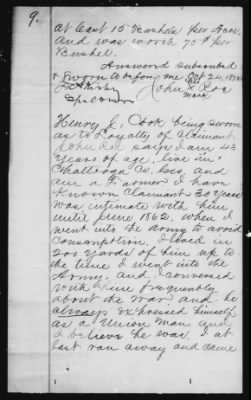 9.
at least 15 Bushels per Acre.
And was worth 75¢ per
Bushel.
Answered subscribed
& Sworn to before me Oct 24, 1872
John X Roe
his
mark
Spl Comr
Henry J. Cook being sworn
as to Loyalty of Claimant
John Roe says I am 43
years of age, live in
Chattooga Co Geo, and
am a Farmer I have
Known Claimant 30 Years
was intimate with him
until June 1862, when I
went into the Army to avoid
Conscription, I lived in
200 yards of him up to
the time I went into the
Army, and I conversed
with him frequently
about the War and he
always expressed himself
as a Union Man and
I believe he was. I at
last ran away and came